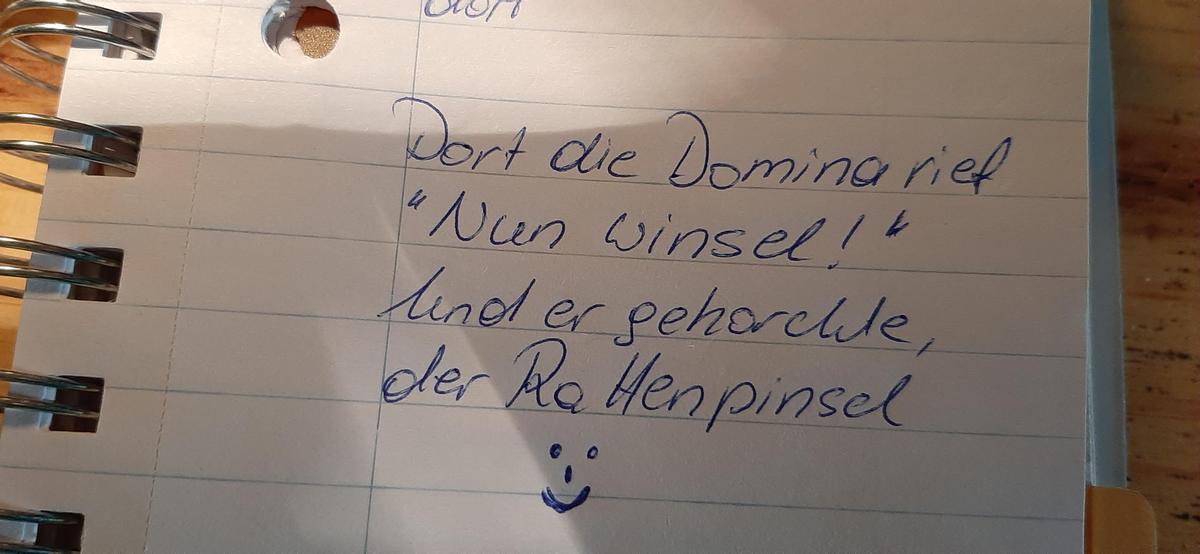 Dort die Domina rief
"Nun winsel!"
Und er gehorchte,
der Rattenpinsel